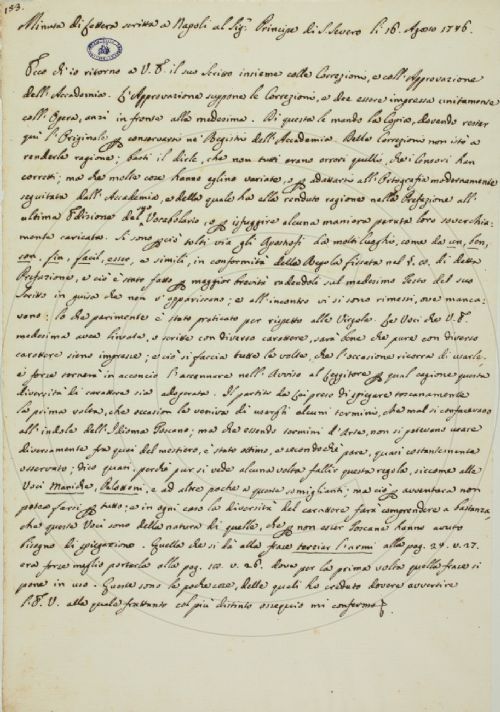 133.
Minuta di Lettera scritta a Napoli al Sig.r Principe di S. Severo li 16. Agosto 1746.
Ecco ch'io ritorno a V. E. il suo Scritto insieme colle Correzioni, e coll'Approvazione
dell'Accademia. L'Approvazione suppone le Correzioni, e dee essere impressa unitamente
coll'Opera, anzi in fronte alla medesima. Di questa le mando la Copia, dovendo restar
qui l'Originale conservarsi ne' Registri dell'Accademia. Delle Correzioni non istò a
renderle ragione; basti il dirle, che non tutti erano errori quelli, che i Censori han
corretti; ma che molte cose hanno eglino variato, o adattarsi all'Ortografia modernamente
seguitata dall'Accademia, e della quale ha ella renduto ragione nella Prefazione all'
ultima Edizione del Vocabolario, o isfuggire alcuna maniera paruta loro soverchia-
mente caricata. Si sono ciò tolti via gli Apostrofi da molti luoghi, come da un, ben,
con, fin, facil, esser, e simili, in conformità della Regola fissata nel §. 10. di detta
Prefazione, e ciò è stato fatto maggior brevità radendolo sul medesimo Testo del suo
Scritto in guisa che non v'appariscono; e all'incontro vi si sono rimessi, ove manca-
vano: lo che parimente è stato praticato per rispetto alle Virgole. Le Voci che V. E.
medesima avea lineate, o scritte con diverso carattere, sarà bene che pure con diverso
carattere sieno impresse; e ciò si faccia tutte le volte, che l'occasione ricorra di usarle,
e forse tornerà in acconcio l'accennare nell'Avviso al Leggitore qual cagione questa
diversità di carattere sia adoperata. Il partito da Lei preso di spiegare toscanamente
la prima volta, che occasion le veniva di usargli alcuni termini, che mal si confacevano
all'indole dell'Idioma Toscano; ma che essendo termini d'Arte, non si potevano usare
diversamente fra quei del mestiero, è stato ottimo, e secondo che pare, quasi costantemente
osservato; dico quasi, perchè pur si vede alcuna volta fallir questa regola, siccome alle
Voci Maniche, Palettoni, e ad altre poche a queste somiglianti; ma ciò avventura non
potea farsi tutto; e in ogni caso la diversità del carattere farà comprendere a bastanza,
che queste Voci sono della natura di quelle, che non esser Toscane hanno avuto
bisogno di spiegazione. Quella che si dà alla frase terziar l'armi alla pag. 24. v. 27.
era forse meglio portarla alla pag. 100. v. 26. dove per la prima volta quella frase si
pone in uso. Queste sono le poche cose, delle quali ho creduto dovere avvertire
l'E. V. alla quale frattanto col più distinto ossequio mi confermo